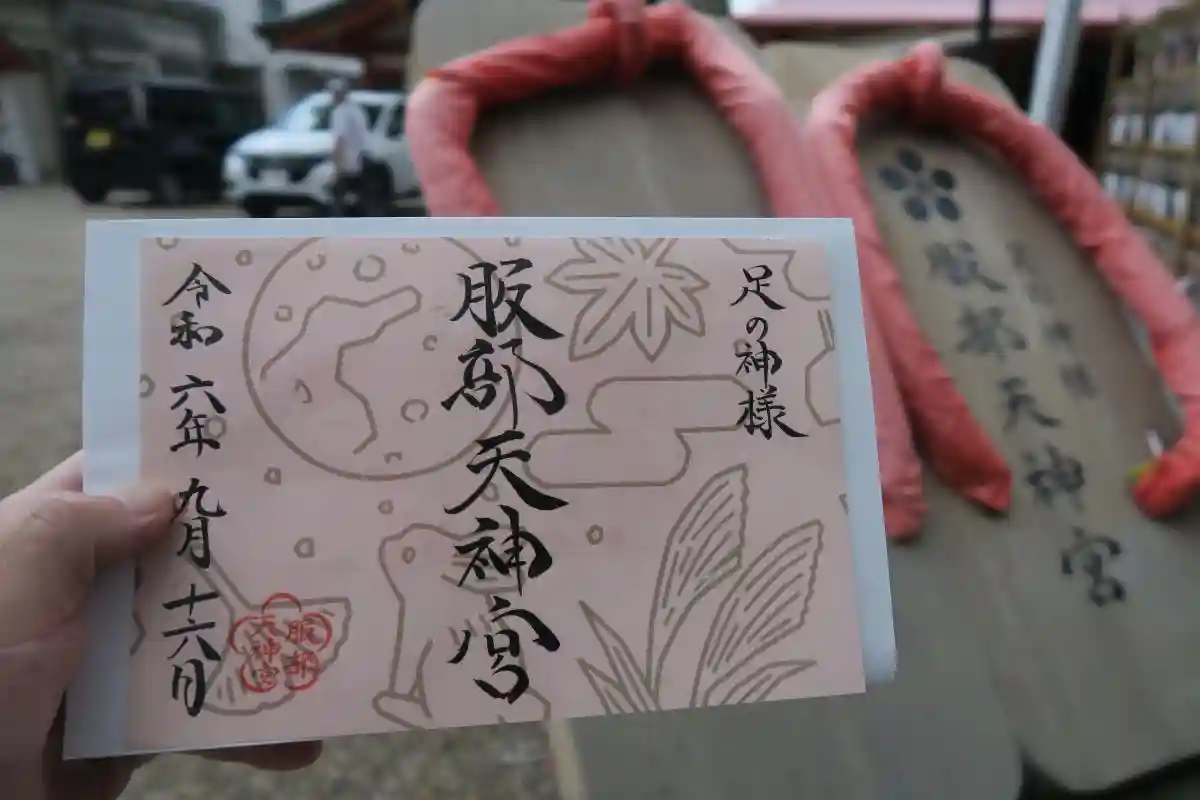 足の神様
服部天神宮
令和六年九月十六月
服部
天神宮
足の神様
服部天神宮